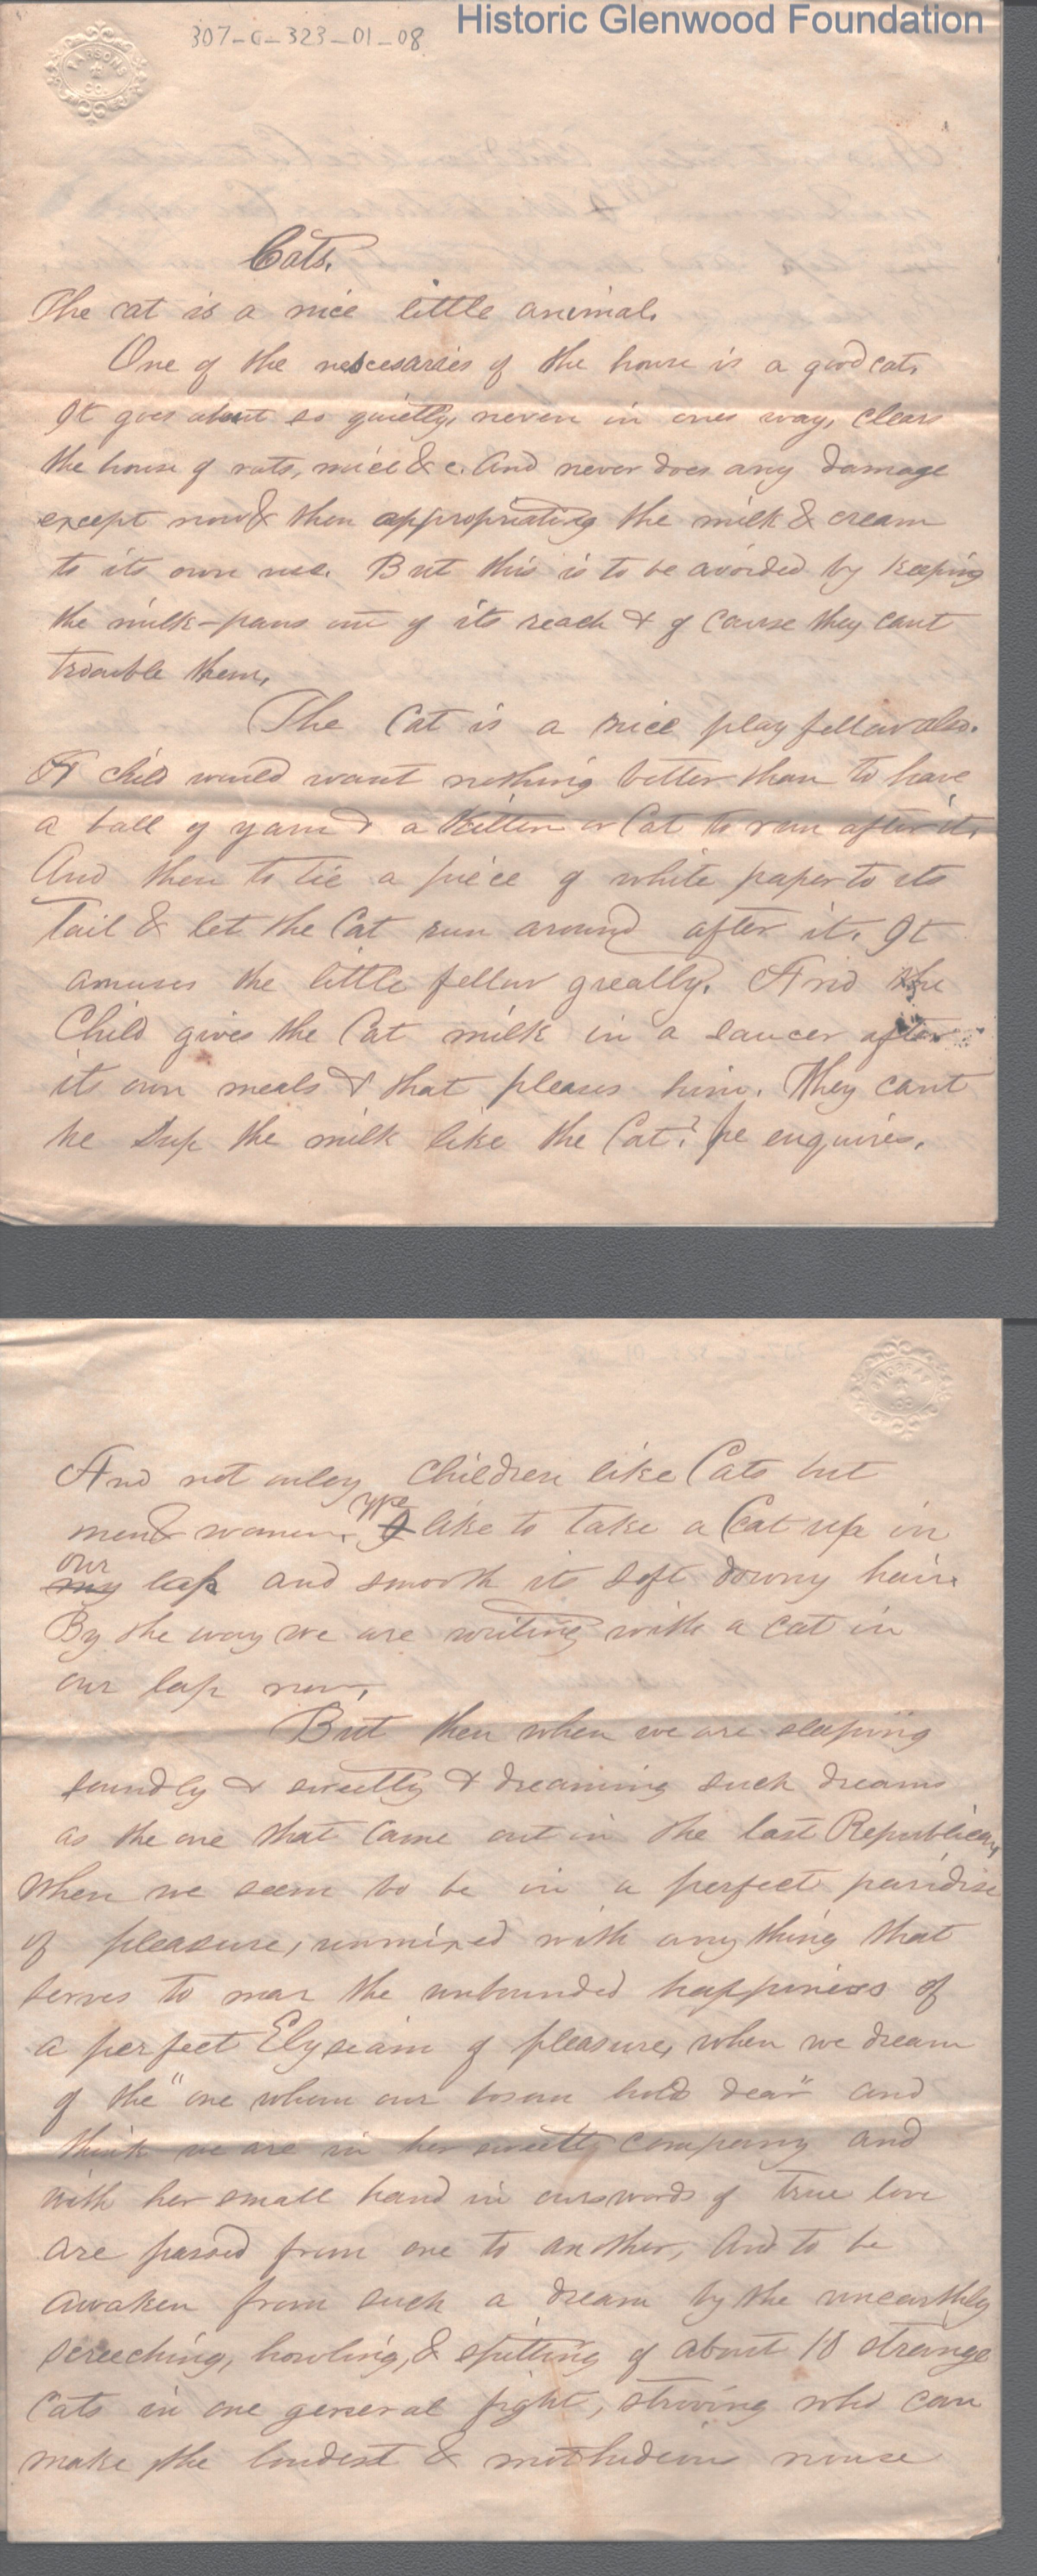 Historic Glenwood Foundation
307-G-323-01-08
PARSONS
CO.
Cats.
The cat is a nice little animal.
One of the nescesaries of the house is a good cat.
It goes about so quietly, never in ones way, clears
the house of rats, mice & c. And never does any damage
except now & then appropriating the milk & cream
to its own use. But this is to be avoided by keeping
the milk-pans out of its reach & of course they cant
trouble them.
The Cat is a nice play fellow also.
A child would want nothing better than to have
a ball of yarn & a Kitten or Cat to run after it.
And then to tie a piece of white paper to its
Tail & let the Cat run around after it. It
amuses the little fellow greatly. And the
Child gives the Cat milk in a saucer after
its own meals & that pleases him. Why cant
he Sup the milk like the Cat? he enquires.
And not onley Children like Cats but
men & women. We I like to take a Cat up in
our
my lap and smooth its soft downy hair.
By the way we are writing with a cat in
our lap now.
But then when we are sleeping
soundly & sweetly & dreaming such dreams
as the one that came out in the last Republican,
when we seem to be in a perfect paridise
of pleasure, unmixed with any thing that
serves to mar the unbounded happiness of
a perfect Elyseum of pleasure, when we dream
of the "one whom our bosom hold dear" and
think we are in her sweetly company and
with her small hand in ours words of true love
are passed from one to another, And to be
awaken from such a dream by the unearthly
screeching, howling, & spitting of about 10 strange
Cats in one general fight, striving who can
make the loudest & most hideous nouse